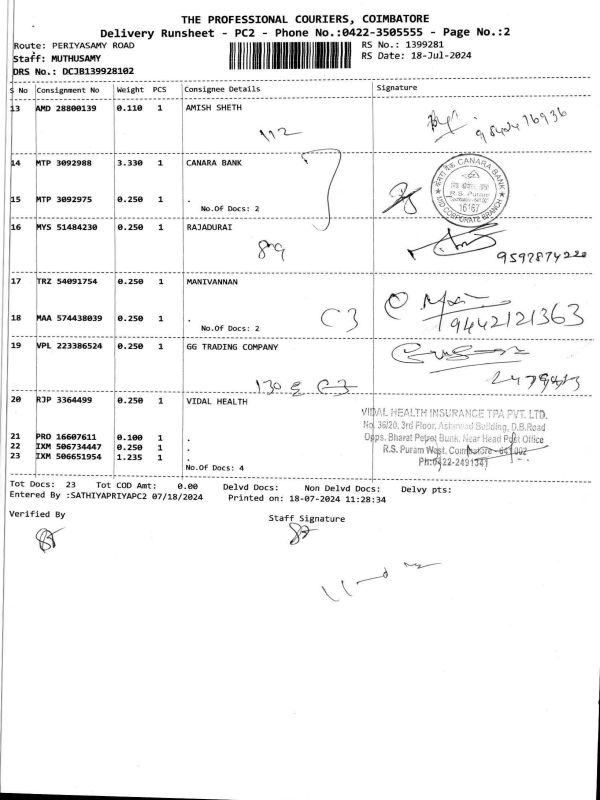 THE PROFESSIONAL COURIERS, COIMBATORE
Delivery Runsheet - PC2 - Phone No.:0422-3505555 - Page No.:2
Route: PERIYASAMY ROAD
RS No.: 1399281
Staff: MUTHUSAMY
RS Date: 18-Jul-2024
DRS No.: DCJB139928102
S No Consignment No Weight PCS Consignee Details Signature
13 AMD 28800139 0.110 1 AMISH SHETH
112
14 MTP 3092988 3.330 1 CANARA BANK
CANARA BANK
R.S. Puram
16167
MID CORPORATE BRANCH
15 MTP 3092975 0.250 1 .
No.Of Docs: 2
16 MYS 51484230 0.250 1 RAJADURAI
17 TRZ 54091754 0.250 1 MANIVANNAN
18 MAA 574438039 0.250 1 .
No.Of Docs: 2
C3
9442121363
19 VPL 223386524 0.250 1 GG TRADING COMPANY
130 & C3
20 RJP 3364499 0.250 1 VIDAL HEALTH
VIDAL HEALTH INSURANCE TPA PVT. LTD.
No. 36/20, 3rd Floor, Building, D.B.Road
Opps. Bharat Petrol Bunk, Near Head Post Office
R.S. Puram West, Coimbatore - 641 002
Ph:0422-2491347
21 PRO 16607611 0.100 1 .
22 IXM 506734447 0.250 1 .
23 IXM 506651954 1.235 1 .
No.Of Docs: 4
Tot Docs: 23 Tot COD Amt: 0.00 Delvd Docs: Non Delvd Docs: Delvy pts:
Entered By :SATHIYAPRIYAPC2 07/18/2024 Printed on: 18-07-2024 11:28:34
Verified By
Staff Signature